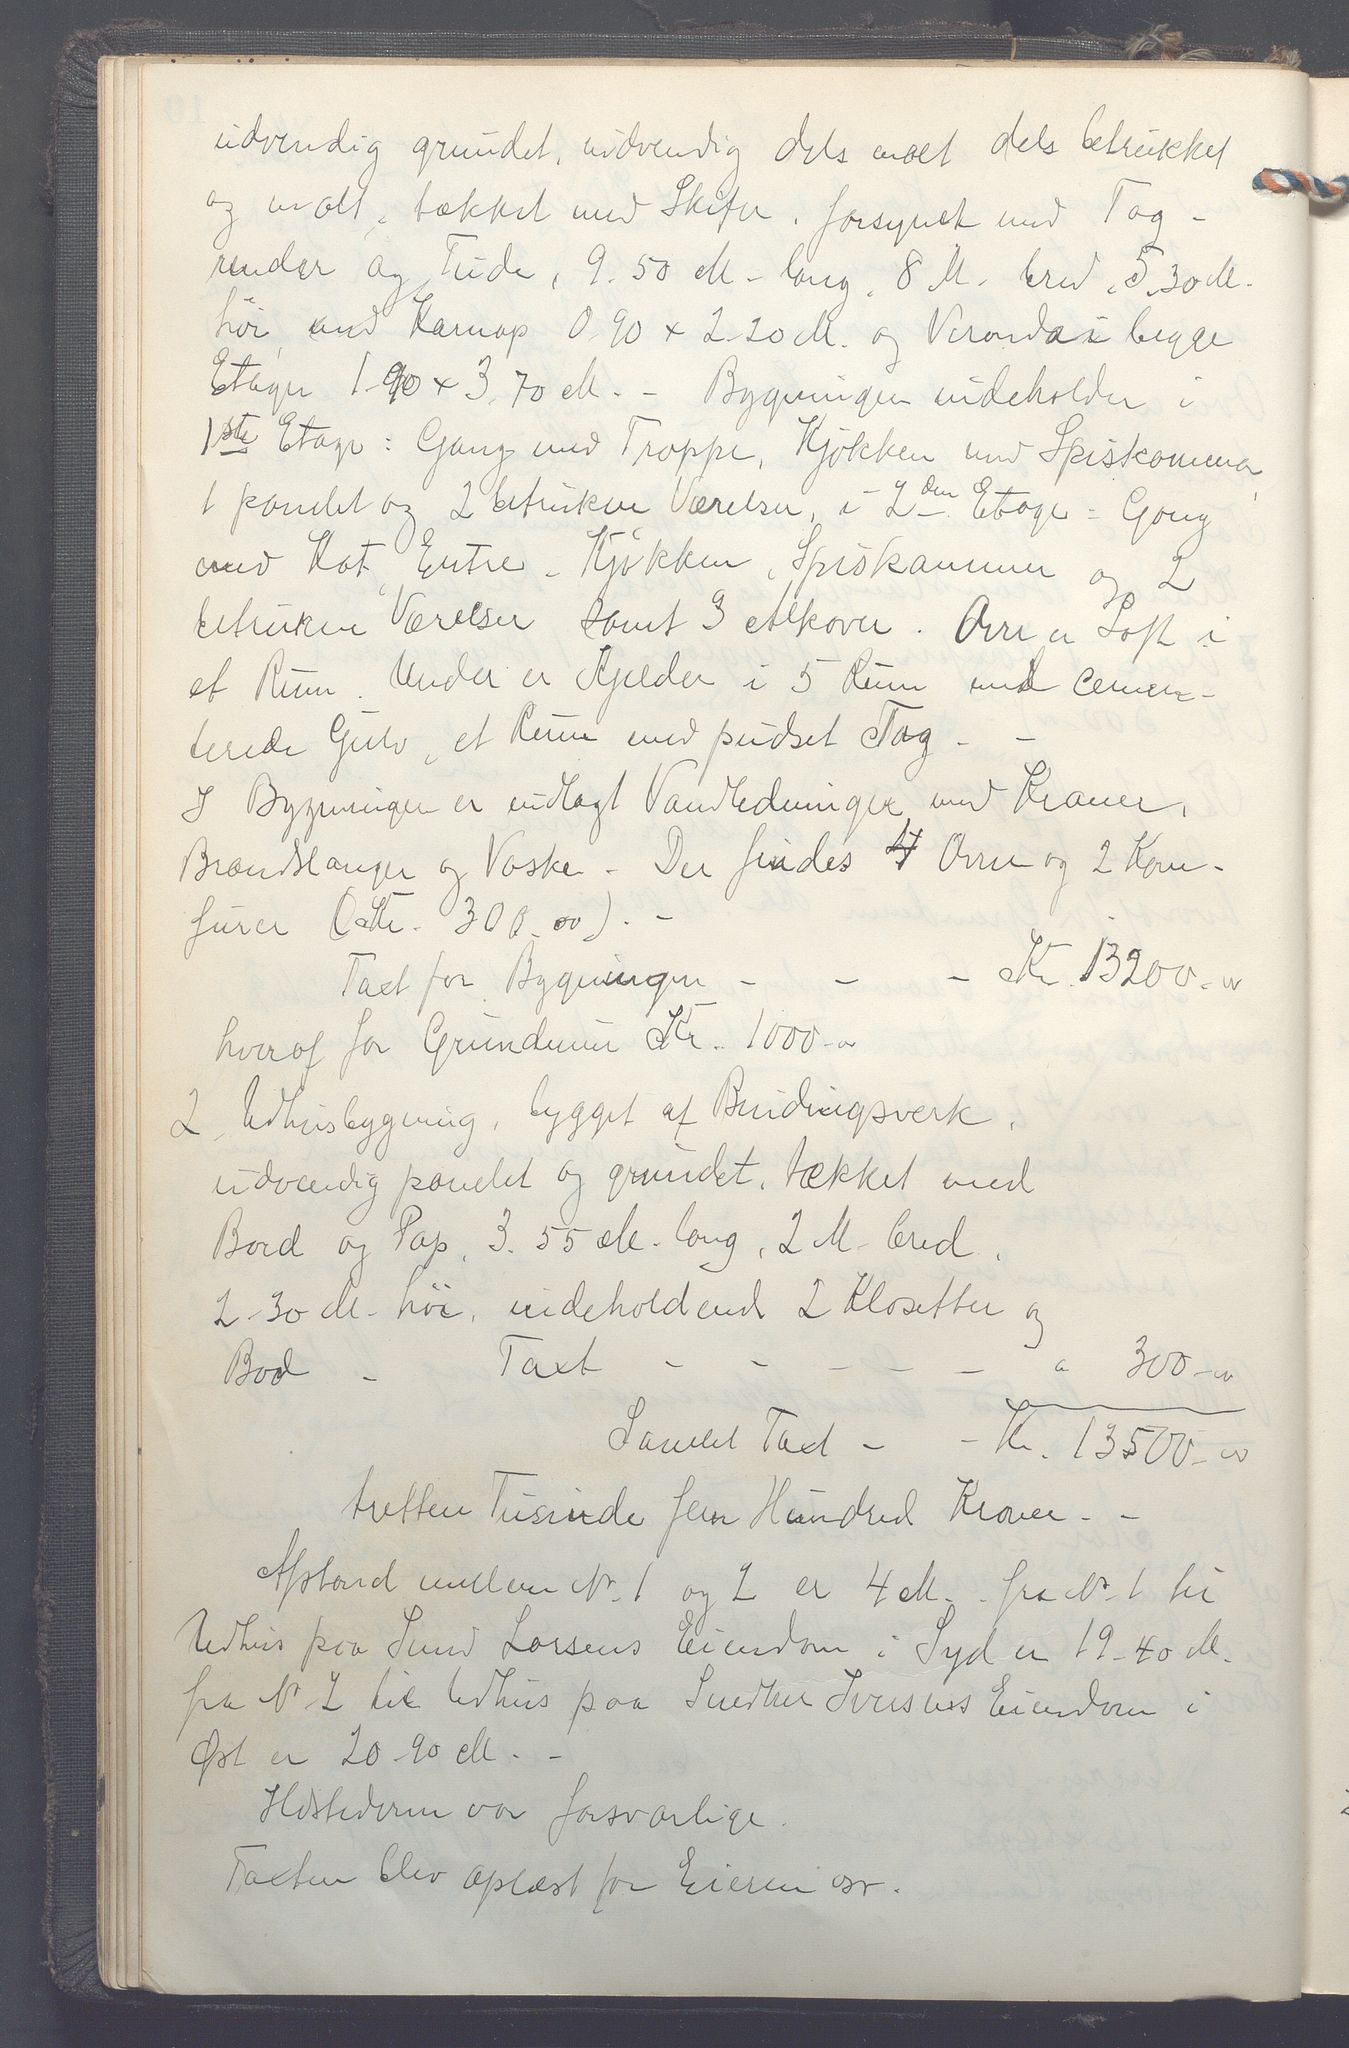 udvendig grundet, indvendig dels malt dels betrukket
og malt, tækket med Skifer, forsynet med Tag-
render og Tude, 9.50 M. lang, 8 M. bred, 5.30 M.
høi, med Karnap 0.90 x 2.20 M. og Veranda i begge
Etager 1.90 x 3.70 M. - Bygningen indeholder i
1ste Etage: Gang med Trappe, Kjøkken med Spiskammer,
1 panelet og 2 betrukne Værelser, i 2den Etage: Gang
med Kot, Entre, Kjøkken, Spiskammer og 2
betrukne Værelser samt 3 Alkover. Over er Loft i
et Rum. Under er Kjelder i 5 Rum med cemen-
terede Gulv, et Rum med pudset Tag. -
I Bygningen er indlagt Vandledninger med Kraner,
Brandslanger og Vaske. - Der findes 4 Ovne og 2 Kom-
furer (Kr. 300.00). -
Taxt for Bygningen - - - Kr. 13200.00
hveraf for Grundmur Kr. 1000.00
2. Udhusbygning, bygget af Bindingsverk,
udvendig panelet og grundet, tækket med
Bord og Pap, 3.55 M. lang, 2 M. bred,
2.30 M. høi, indeholdende 2 Klosetter og
Bod - Taxt - - - - - " 300.00
Samlet Taxt - - Kr. 13500.00
tretten Tusinde fem Hundred Kroner. -
Afstand mellem No. 1 og 2 er 4 M. fra No. 1 til
Udhus paa Lars​ens Eiendom i Syd er 19.40 M.
fra No. 2 til Udhus paa Snedker Iversens Eiendom i
Øst er 20.90 M. -
Ildstederne var forsvarlige.
Taxten blev oplæst for Eieren osv.